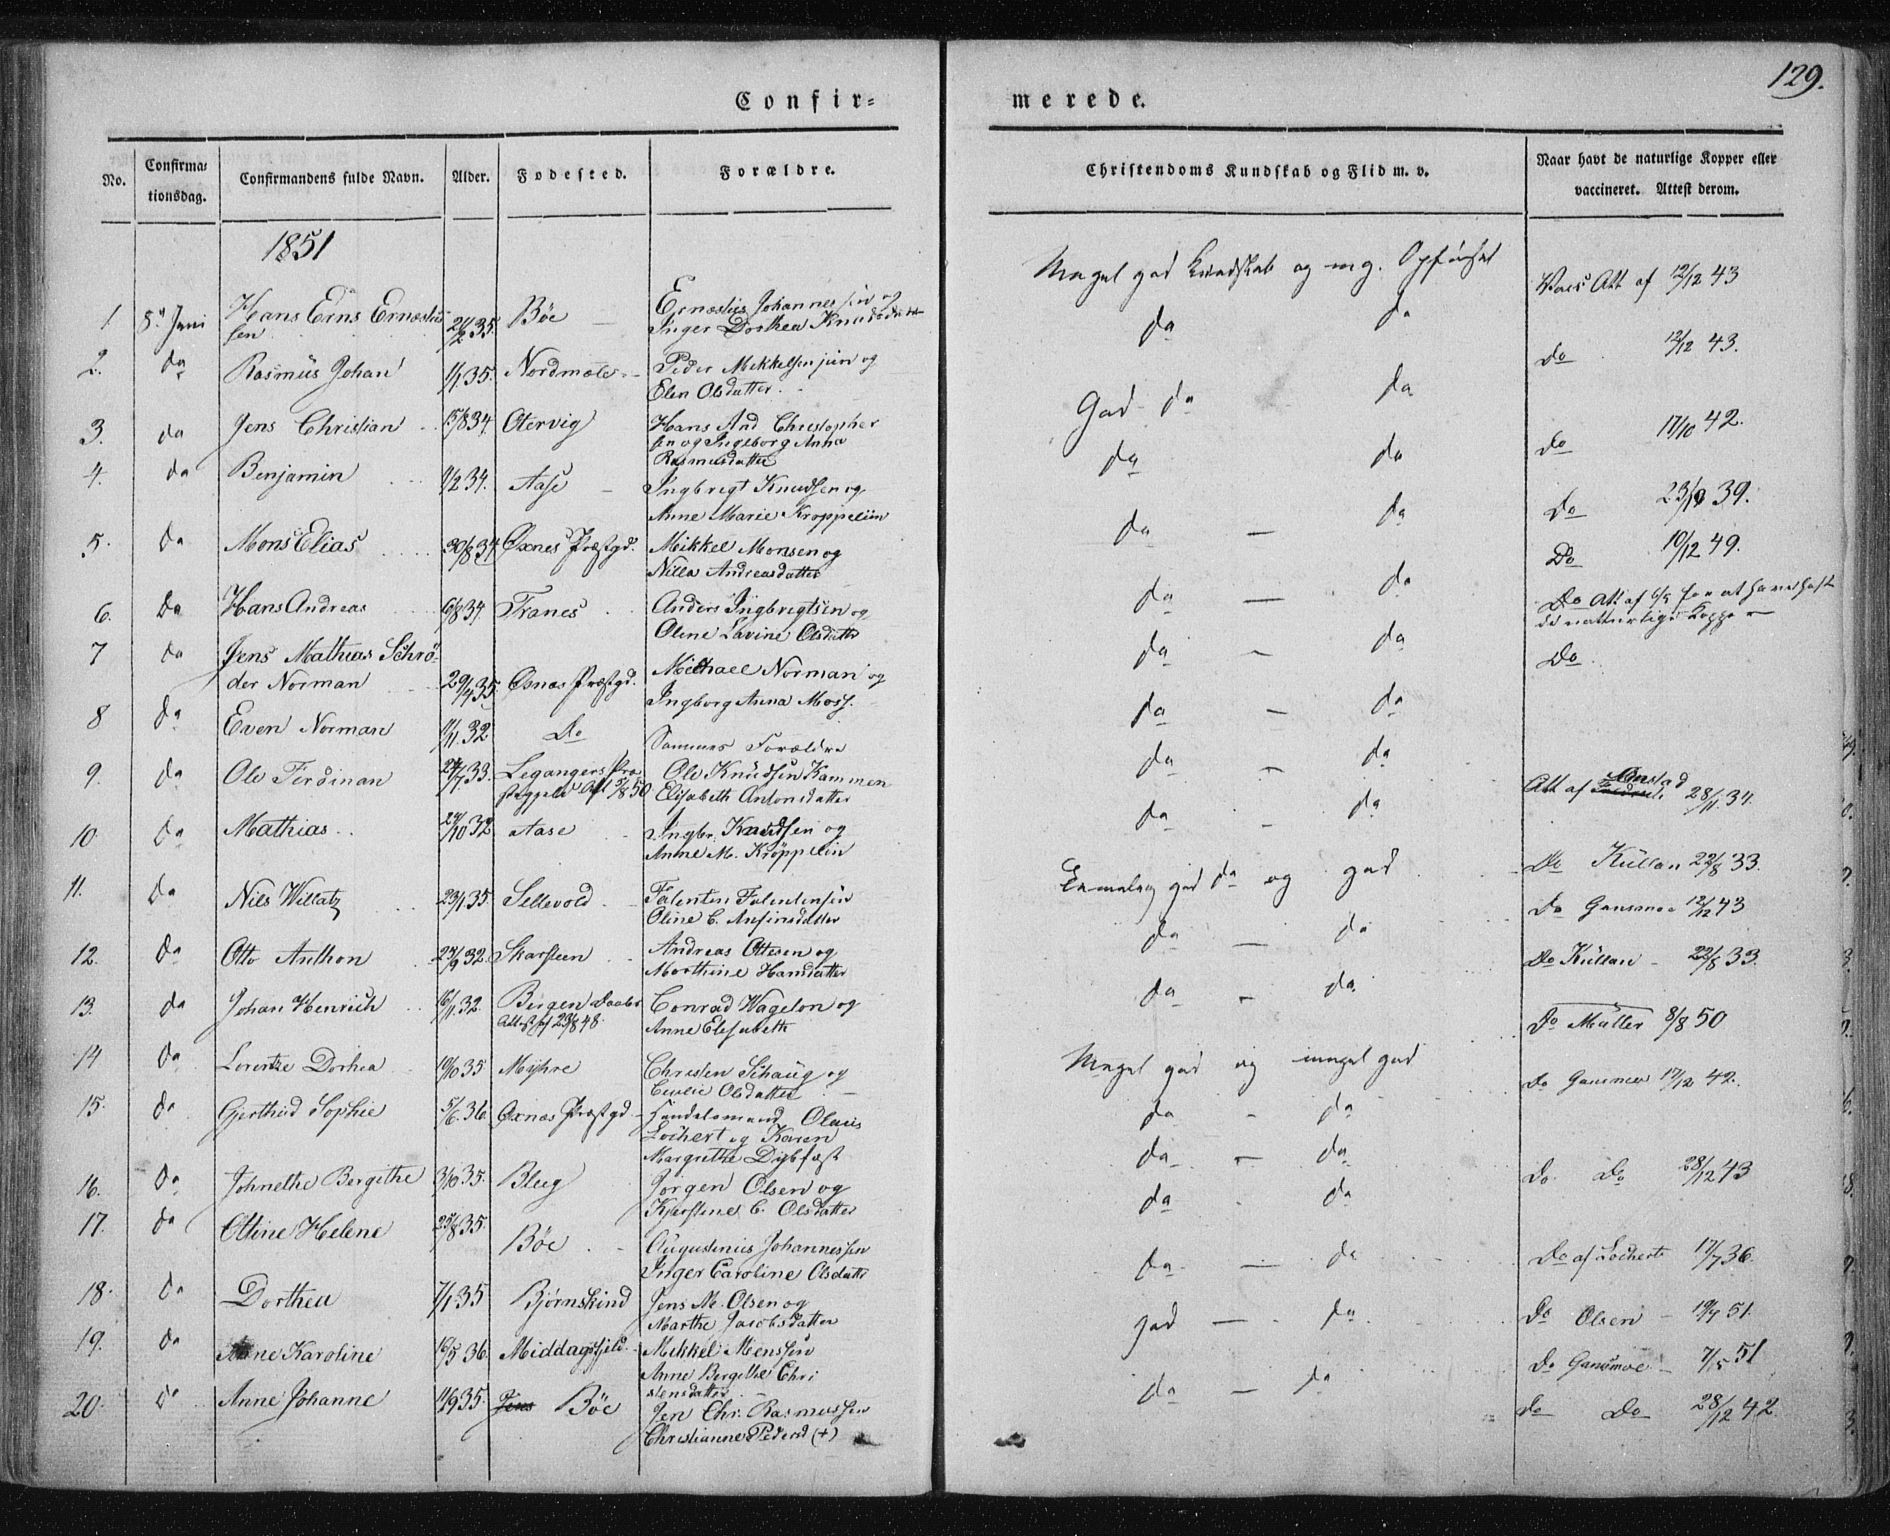 129.
Confir=
merede.
No.
Confirma=
tionsdag.
Confirmandens fulde Navn.
Alder.
Fødested.
Forældre.
Christendoms Kundskab og Flid m. v.
Naar havt de naturlige Kopper eller
vaccineret. Attest derom.
1851
Meget god Kundskab og mg. Opførsel
Vacs Att af 12/12 43
1. 8d Juni Hans Erns Ernæstu
sen 2/2 35. Bøe Ernæstus Johannessen og
Inger Dorthea Knudsdatter
do do
Do 12/12 43.
2. do Rasmus Johan 1/1 35. Nordmæle Peder Mikkelsen jun og
Elen Olsdatter
God do do
3. do Jens Christian 15/8 34. Otervig Hans And Christopher
sen og Ingeborg Anna
Rasmusdatter
do do
Do 17/10 42.
4. do Benjamin 1/2 34. Aase Ingbrigt Knudsen og
Anne Marie Krøppelin
do do
Do 39.
5. do Mons Elias 30/8 34 Øxnes Præstgd. Mikkel Monsen og
Nilla Andreasdatter
do do
Do 10/12 49.
6. Do Hans Andreas 6/8 34 Franes Anders Ingbrigtsen og
Oline Lavine Olsdatter
do do
Do Att af for at have havt
de naturlige Kopper
7 do Jens Mathias Schrø
der Norman 29/4 35. Øxnæs Præstgd. Michael Norman og
Ingborg Anna Moss.
do do
Do
8 do Even Norman 1/11 32 Do Sammes Forældre
do do
9. do Ole Ferdinan 27/7 33. Legangers Præ
stegjeld Att 5/8 50 Ole Knudsen Kammen
Elisabeth Antonsdatter
do do
Att af 28/11 34.
10 do Mathias 24/10 32 Aase Ingbr. Knudsen og
Anne M. Krøppelin
Do Küllan 22/8 33.
11. do Nils Willatz 23/1 35 Sellevold Falenten Falentensen
Oline C. Anfinsdatter
god do og god
Do Gansmoe 12/12 43
12. do Otto Anthon 24/9 32. Skarsteen Andreas Ottesen og
Marthine Hansdatter
do do
Do Küllan 22/8 33.
13. do Johan Henrich 6/11 32. Bergen Daabs
Attest af 23/8 48. Conrad Wagelon og
Anne Elisabeth
do do
Do Müller 8/8 50
14 do Lorentze Dorhea 19/10 35 Myhre Christen Schaug og
Cecilie Olsdatter
Meget god og meget god
Do Gansmoe 17/12 42.
15. do Gjerthrud Sophie 5/6 36 Øxnæs Præstgd Handelsmand Olaus
Lochert og Karen
Margrethe Dybfæst
do do
16. do Johnethe Bergithe 3/10 35. Bleg Jørgen Olsen og
Kjerstine C. Olsdatter
do do
Do Do 28/12 43
17. do Oline Helene 25/8 35 Bøe Augustinus Johannessen
Inger Caroline Olsdatter
do do
Do af Locherts 17/7 36.
18. do Dorthea 7/1 35 Bjørnskind Jens M. Olsen og
Marthe Jacobsdatter
do do
Do Olsen 19/4 51.
19. do Anne Karoline 16/5 36 Middagsfjeld. Mikkel Monssen
Anne Bergithe Chri
stensdatter
god do
Do Gansmoe 7/5 51
20. do Anne Johanne 11/9 35 Jens Bøe Jen Chr. Rasmussen
Christianne Pedersd (+)
do do
Do Do 28/12 42.